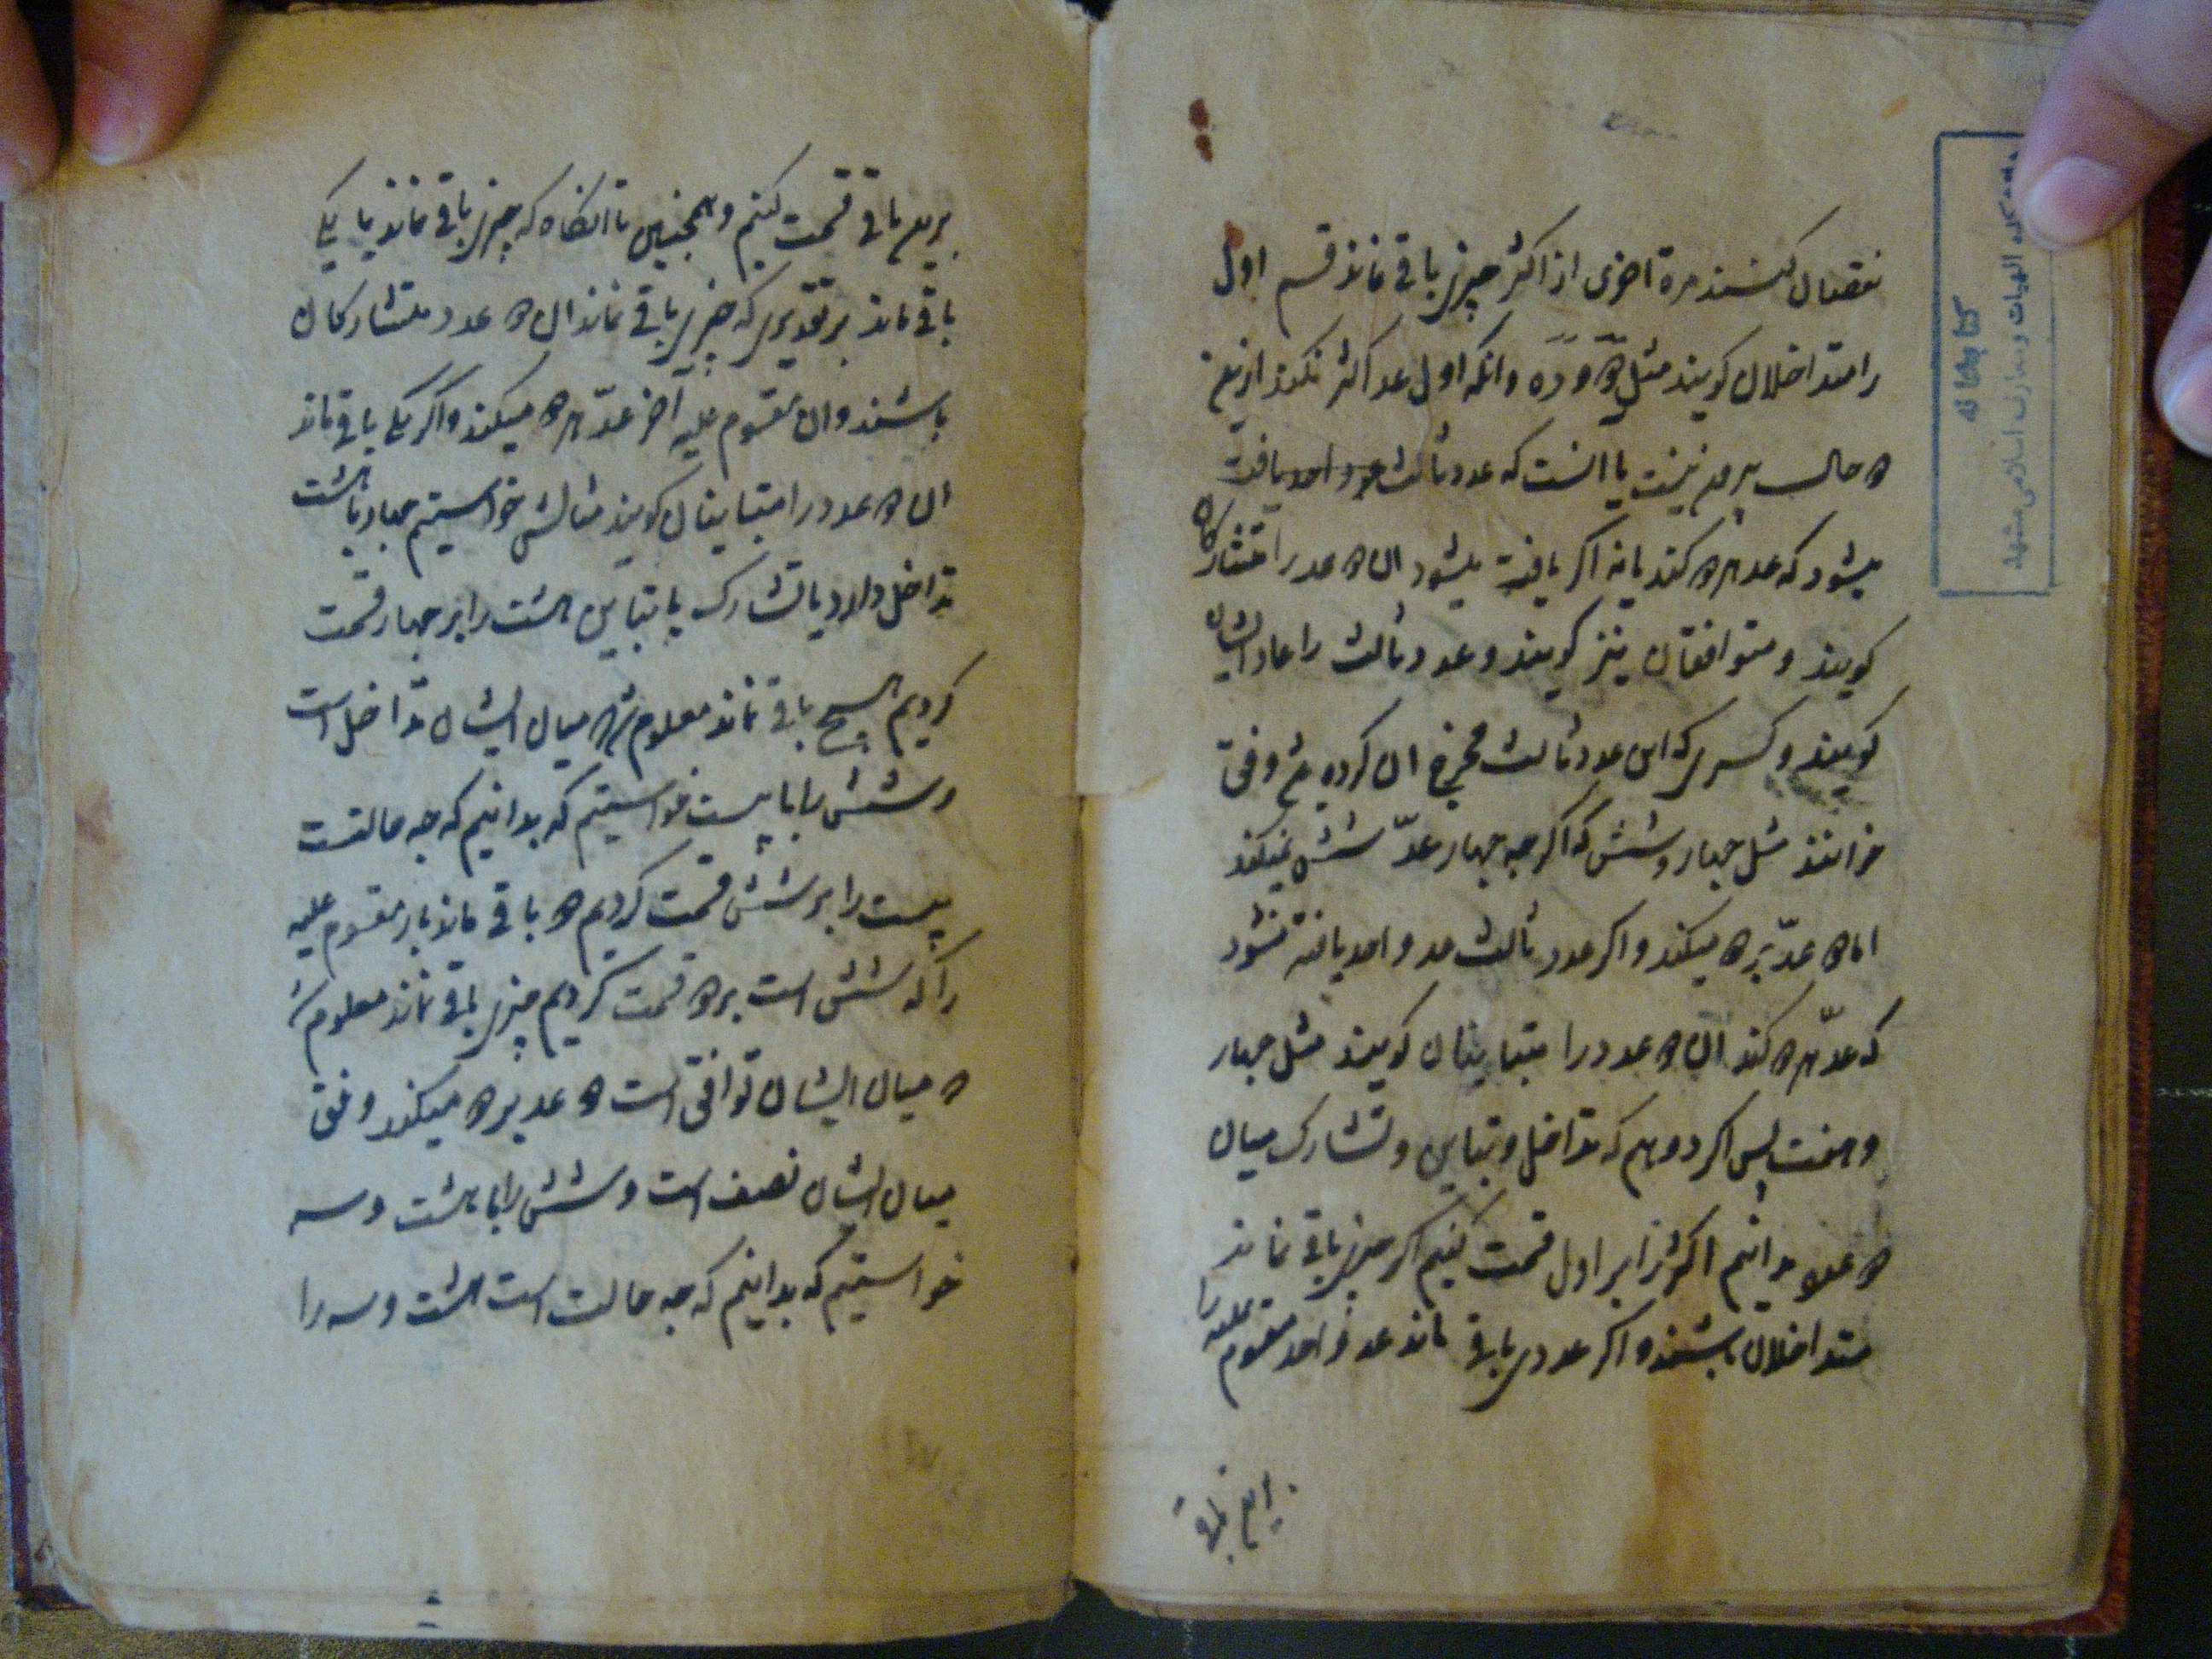 نقصان کنند مرة اخری از اکثر چیزی باقی نماند قسم اول
را متداخلان کویند مثل ۵ و ده وانکه اول عد اکثر نکند از
حالی بیرون نیست یا انست که عدد ثالث غیر واحد یافت
میشود که عد هر دو کند یا نه اکر یافت میشود ان دو عدد را متشارکان
کویند و متوافقان نیز کویند و عدد ثالث را عاد ایشان
کویند و کسری که این عدد ثالث مخرج ان کرده وفق
خوانند مثل چهار و شش که اکرچه چهار عدّ شش نمیکند
اما دو عدّ هر دو میکند و اکر عدد ثالث واحد یافته نشود
که عدّ هر دو کند ان دو عدد را متباینان کویند مثل چهار
و هفت پس اکر خواهیم که تداخل و تباین و تشارک میان
دو عدد بدانیم اکثر را بر اول قسمت کنیم اکر چیزی باقی نماند
متداخلان باشند و اکر عددی باقی ماند مقسوم علیه را
بر باقی
بریع باقی قسمت کنیم و همچنین تا انکاه که چیزی باقی نماند یا یکی
باقی ماند بر تقدیری که چیزی باقی نماند ان دو عدد متشارکان
باشند و ان مقسوم علیه آخر عدّ هر دو میکند و اکر یکی باقی ماند
ان دو عدد را متباینان کویند مثالش خواستیم چهار با هشت
تداخل دارد یا تشارک یا تباین هشت را بر چهار قسمت
کردیم هیچ باقی نماند معلوم شد که میان ایشان تداخل است
و شش را با بیست خواستیم که بدانیم که چه حالتست
بیست را بر شش قسمت کردیم دو باقی ماند باز مقسوم علیه
را که شش است بر دو قسمت کردیم چیزی باقی نماند معلوم شد
که میان ایشان توافق است دو عد هر دو میکند وفق
میان ایشان نصف است و شش را با هشت و سه
خواستیم که بدانیم که چه حالت است هشت و سه را
کتابخانه
دانشکده الهیات و معارف اسلامی مشهد